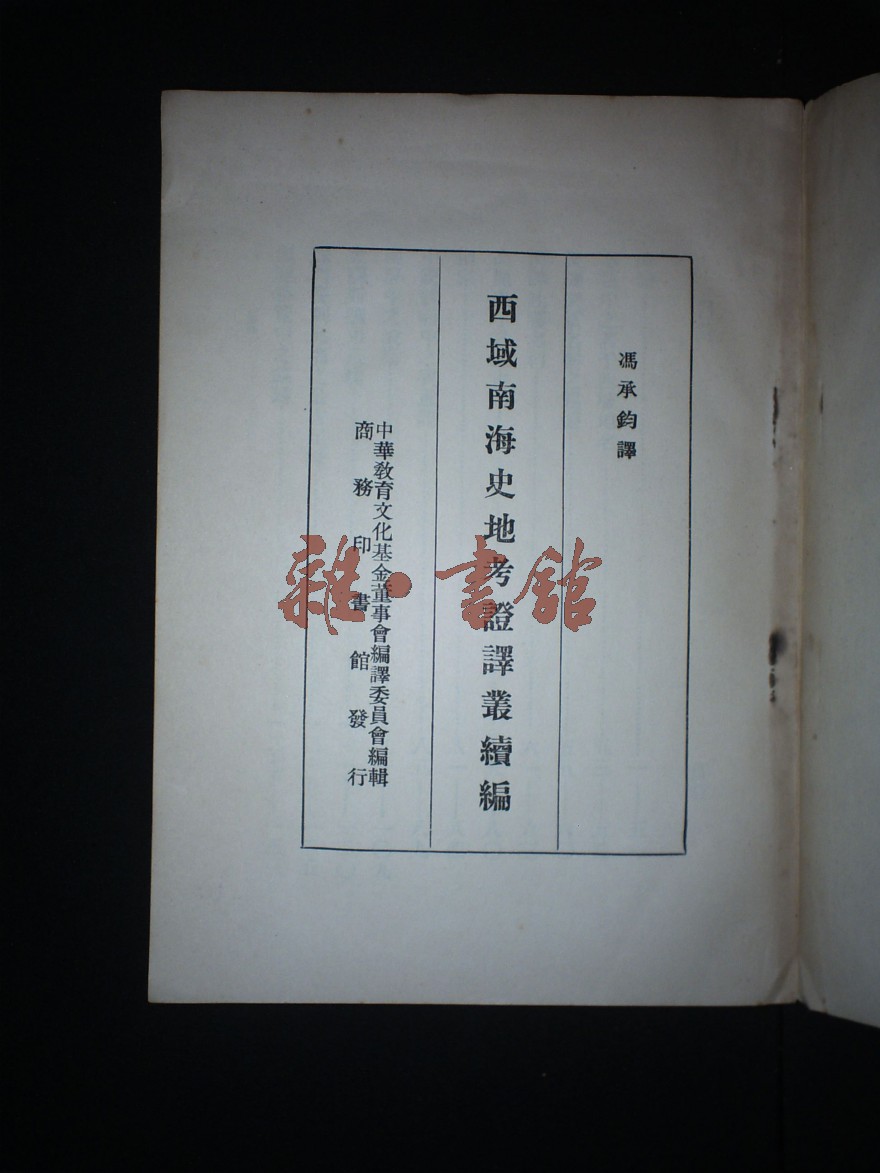 馮承鈞譯
西域南海史地考證譯叢續編
中華教育文化基金董事會編譯委員會編輯
商務印書館發行
雜·書館